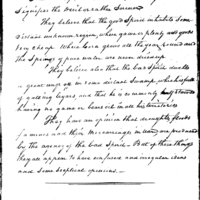 Signifies the Devil or rather Satan
They believe that the good Spirit inhabits some
vast unknown region, where game is plenty and goods
very cheap. Where leaves green all the year round and
the Springs of pure water are never dried up.
They believe also that the bad Spirit dwells
a great way off in some dismal Swamp, which is full
of galling briers and that he is commonly
having no game or bears oil in all his territories
They have an opinion that droughts floods
famines and their miscarriage in war, are produced
by the agency of the bad Spirit. But of these things
they appear to have confused and irregular ideas
and some sceptical opinions.